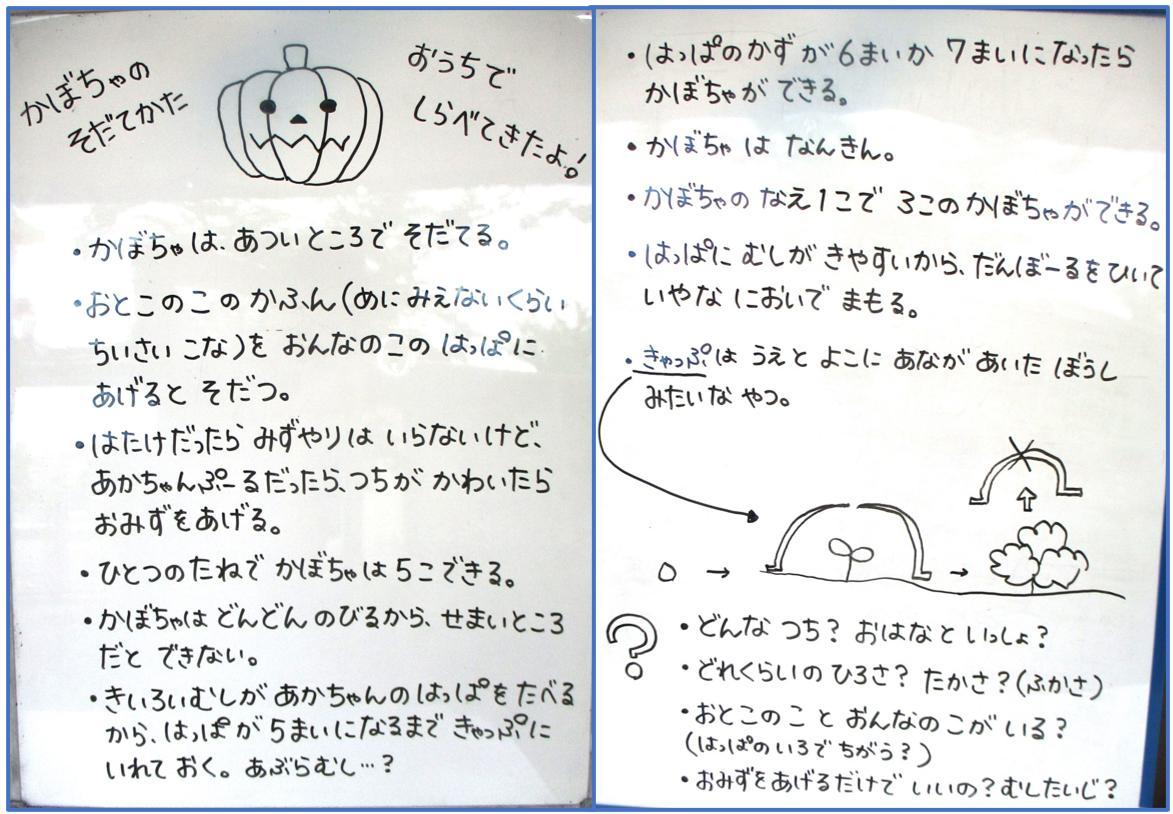 かぼちゃの
そだてかた
おうちで
しらべてきたよ!
・かぼちゃは、あついところでそだてる。
・おとこのこのかふん(めにみえないくらい
ちいさいこな)を おんなのこの はっぱに
あげると そだつ。
・はたけだったら みずやりは いらないけど、
あかちゃんぷーるだったら、つちが かわいたら
おみずをあげる。
・ひとつのたねで かぼちゃは5こできる。
・かぼちゃは どんどん のびるから、せまいところ
だと できない。
・きいろいむしが あかちゃんの はっぱを たべる
から、はっぱが 5まいになるまで きゃっぷに
いれて おく。 あぶらむし…?
・はっぱのかずが6まいか 7まいになったら
かぼちゃが できる。
・かぼちゃ は なんきん。
・かぼちゃの なえ1こで 3このかぼちゃができる。
・はっぱに むしが きやすいから、だんぼーるをひいて
いやな においで まもる。
・きゃっぷは うえと よこに あなが あいた ぼうし
みたいな やつ。
?
・どんな つち? おはなと いっしょ?
・どれくらいの ひろさ? たかさ?(ふかさ)
・おとこのこ と おんなのこが いる?
(はっぱの いろで ちがう?)
・おみずをあげるだけで いいの?むしたいじ?